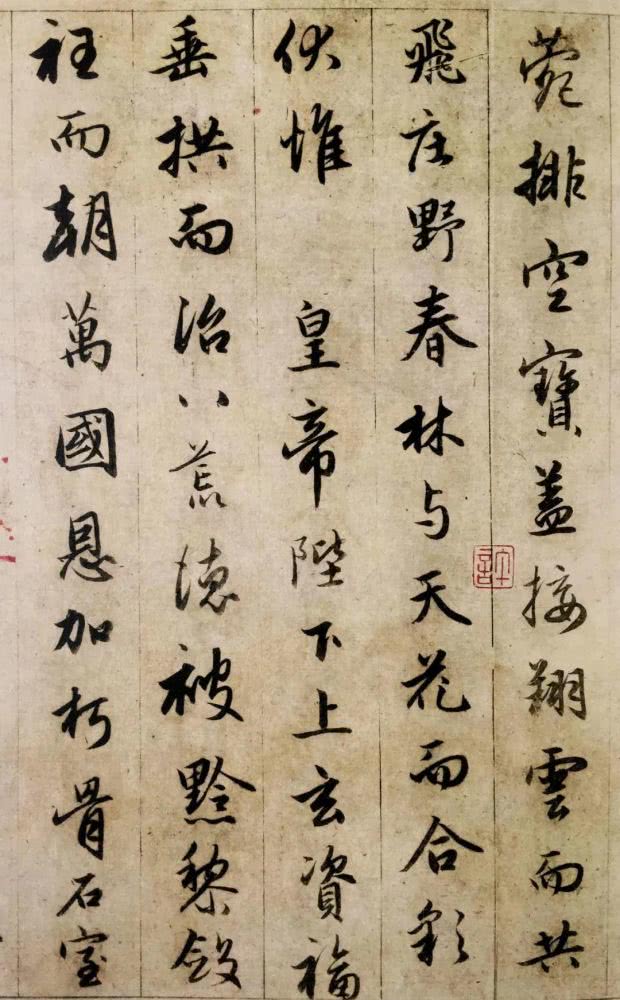 菀排空寶蓋接翔雲而共
飛庄野春林与天花而合彩
伏惟 皇帝陛下上玄資福
垂拱而治八荒德被黔黎斂
衽而朝萬國恩加朽骨石室